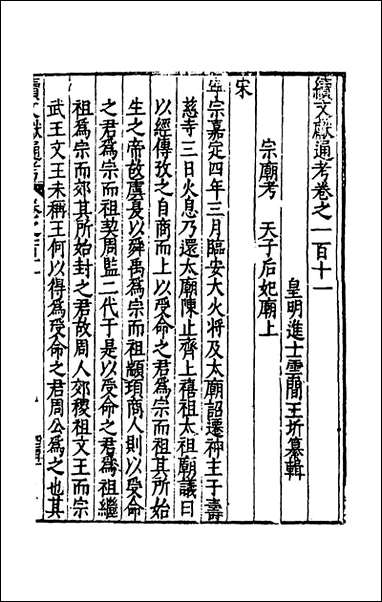 續文獻通考卷之一百十一
皇明進士雲間王圻纂輯
宗廟考　天子后妃廟上
宋
寧宗嘉定四年三月臨安大火將及太廟詔遷神主于壽
慈寺三日火息乃還太廟陳止齊上禧祖太祖廟議曰
以經傳孜之自商而上以受命之君為宗而祖其所始
生之帝故虞夏以舜禹為宗而祖顓頊商人則以受命
之君為宗而祖契周監二代于是以受命之君為祖繼
祖為宗而郊其所始封之君故周人郊稷祖文王而宗
武王文王未稱王何以得為受命之君周公為之也其
續文獻通考